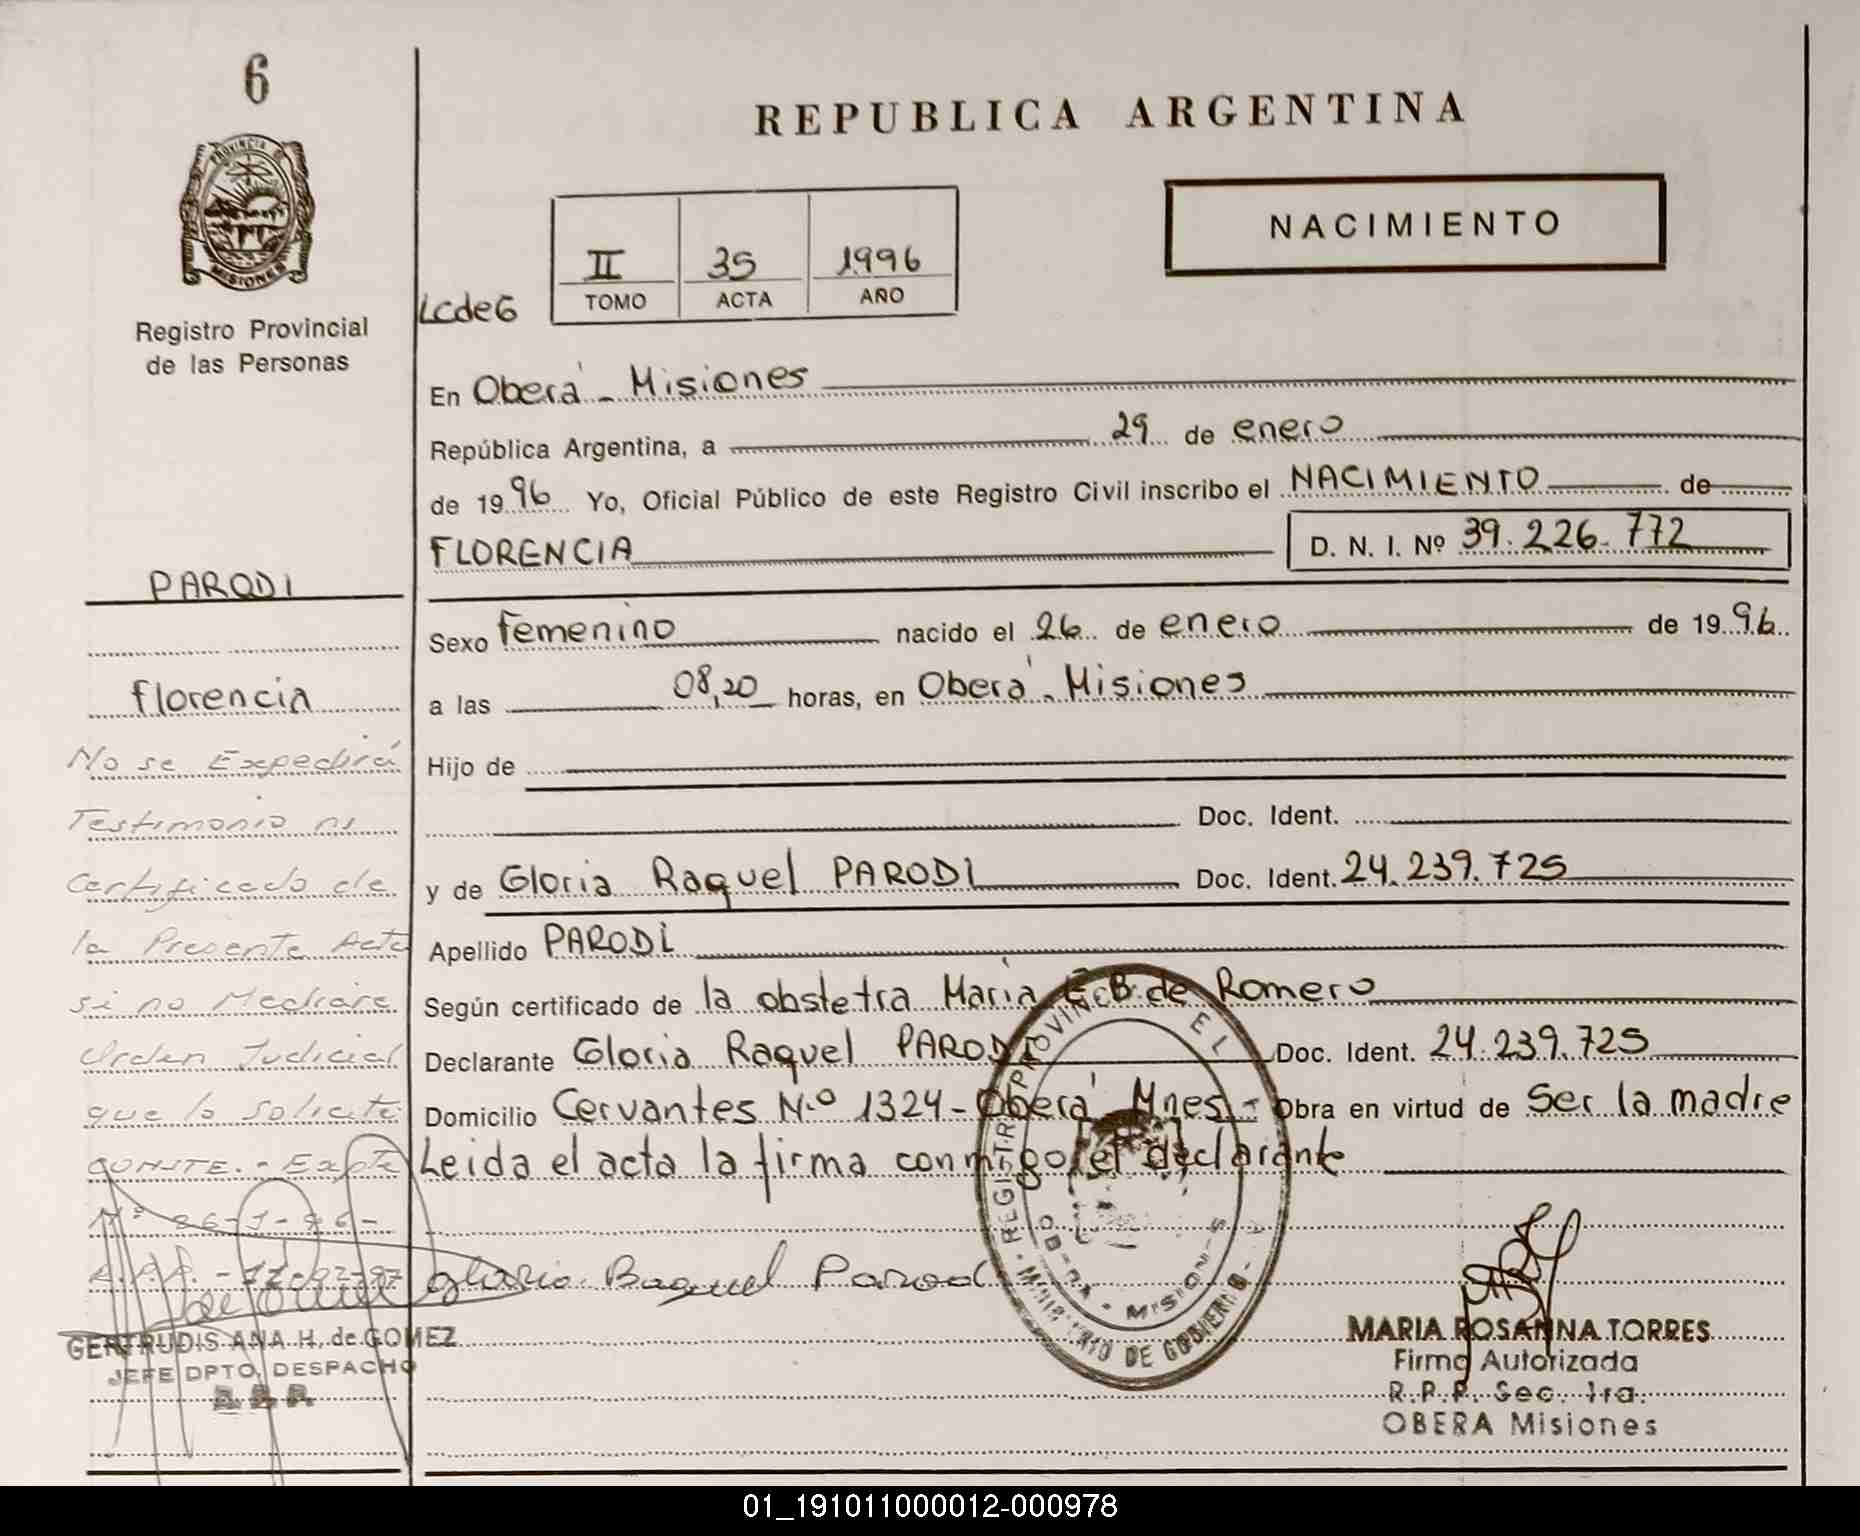 6
REPUBLICA ARGENTINA
PROVINCIA DE
MISIONES
Registro Provincial
de las Personas
NACIMIENTO
II 35 1996
TOMO ACTA AÑO
Lcde6
En Oberá - Misiones
República Argentina, a 29 de enero
de 1996 Yo, Oficial Público de este Registro Civil inscribo el NACIMIENTO de
FLORENCIA D. N. I. Nº 39.226.772
PARODI
Sexo Femenino nacido el 26 de enero de 1996
Florencia
a las 08,20 horas, en Oberá - Misiones
Hijo de
Doc. Ident.
y de Gloria Raquel PARODI Doc. Ident. 24.239.725
Apellido PARODI
Según certificado de la obstetra María E. B. de Romero
Declarante Gloria Raquel PARODI Doc. Ident. 24.239.725
Domicilio Cervantes N.º 1324 - Oberá Mnes - Obra en virtud de Ser la madre
Leida el acta la firma conmigo el declarante
No se Expedirá
Testimonio ni
Certificado de
la Presente Acta
si no Mediare
Orden Judicial
que lo solicite
CONSTE. - Expte
Nº 86-J-96-
Gloria Raquel Parodi
REGISTRO PROVINCIAL DE
MINISTERIO DE GOBIERNO
OBERA - MISIONES
GERTRUDIS ANA H. de GOMEZ
JEFE DPTO. DESPACHO
MARIA ROSANNA TORRES
Firma Autorizada
R.P.P. Sec. 1ra.
OBERA Misiones
01_191011000012-000978